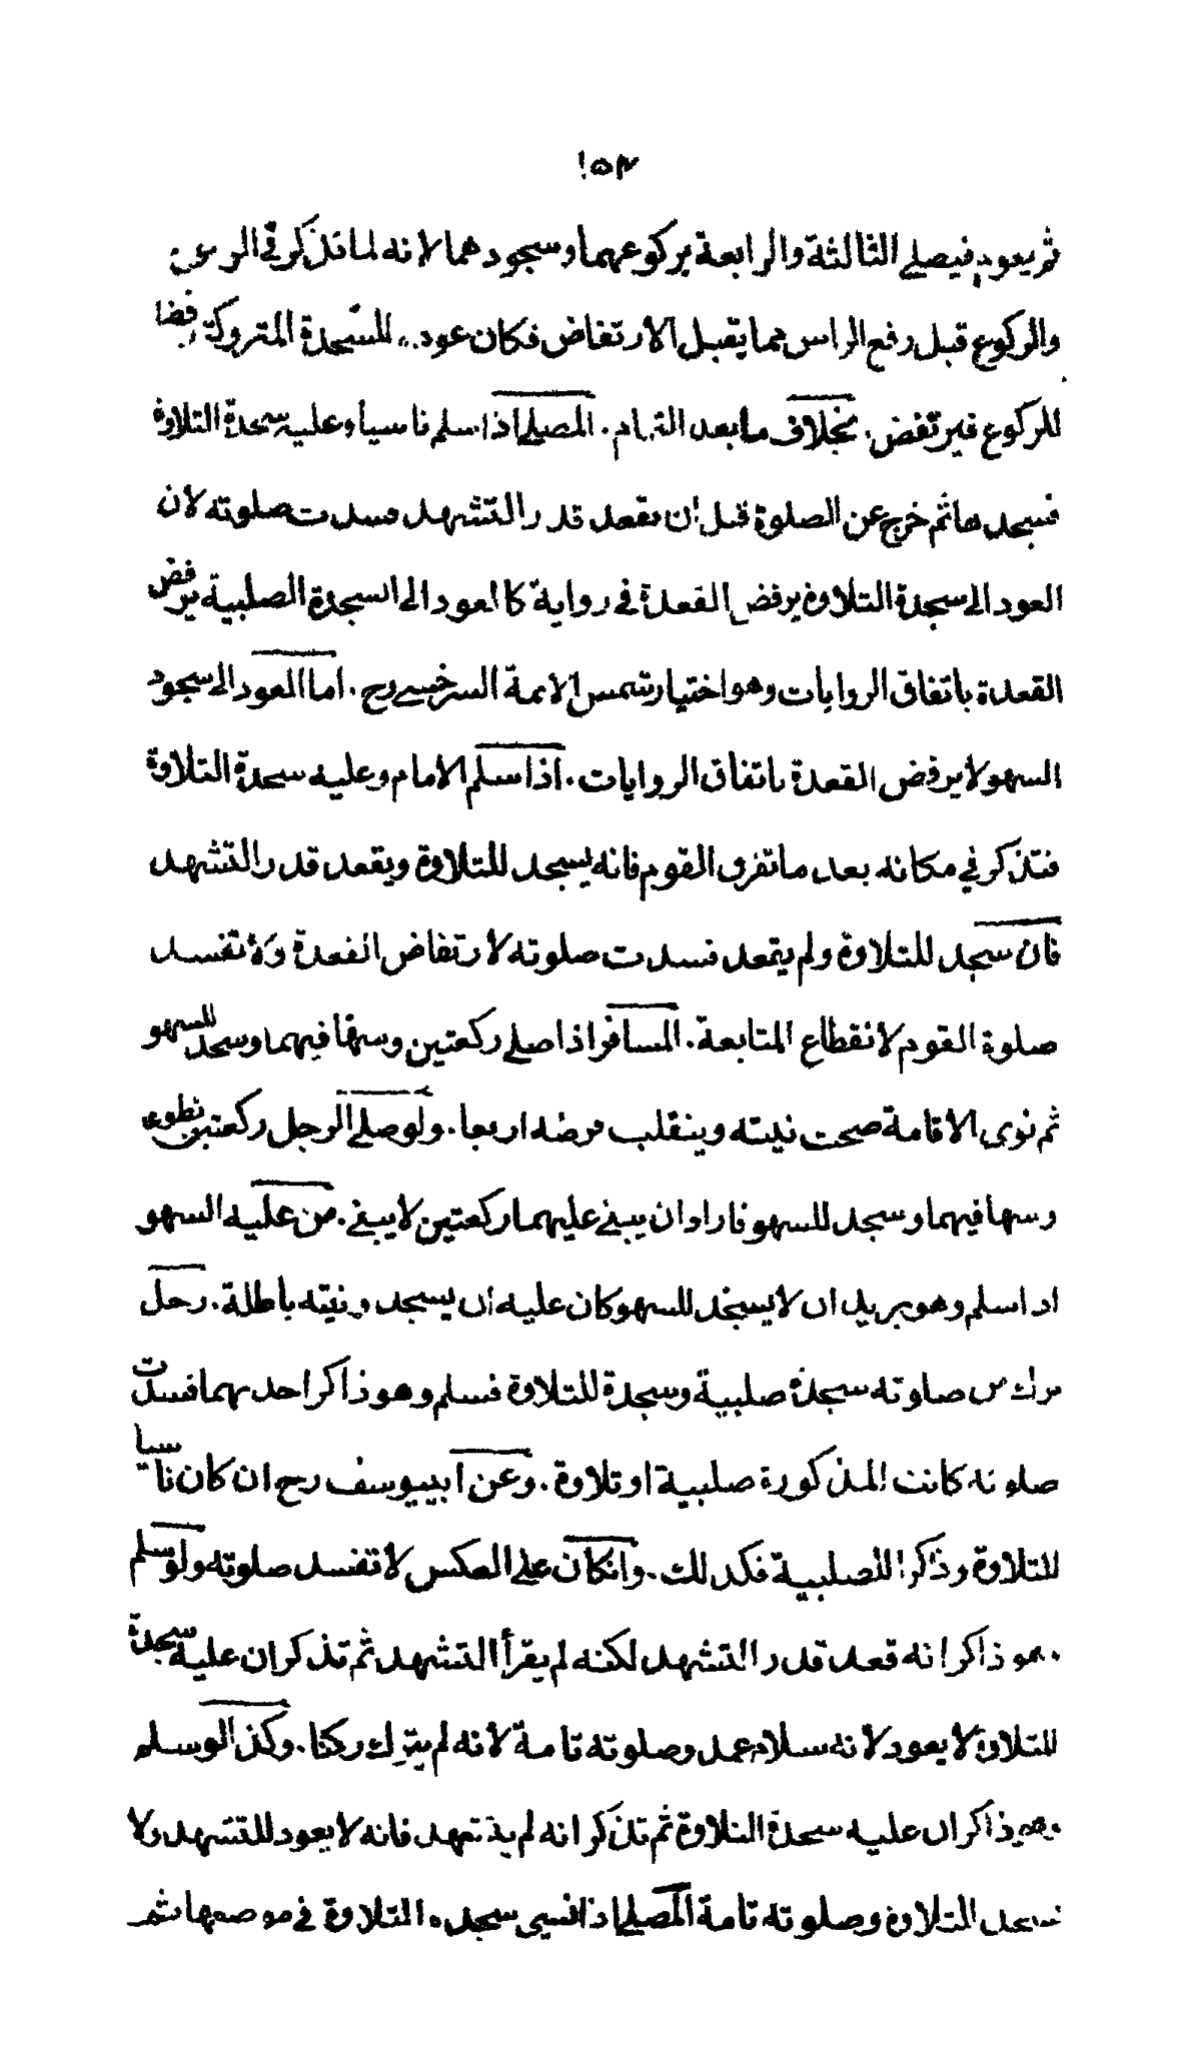 ١٥٣
ثم يعود فيصلي الثالثة والرابعة بركوعهما وسجودهما لانه لما تذكر في الركوع
والركوع قبل رفع الراس مما يقبل الارتفاض فكان عوده للسجدة المتروكة رفضا
للركوع فيرتفض. بخلاف ما بعد التمام. المصلي اذا سلم ناسيا وعليه سجدة التلاوة
فسجدها ثم خرج عن الصلوة قبل ان يقعد قدر التشهد فسدت صلوته لان
العود الى سجدة التلاوة يرفض القعدة في رواية كالعود الى السجدة الصلبية يرفض
القعدة باتفاق الروايات وهو اختيار شمس الائمة السرخسي رح. اما العود الى سجود
السهو لا يرفض القعدة باتفاق الروايات. اذا سلم الامام وعليه سجدة التلاوة
فتذكر في مكانه بعد ما تفرق القوم فانه يسجد للتلاوة ويقعد قدر التشهد
فان سجد للتلاوة ولم يقعد فسدت صلوته لارتفاض القعدة ولا تفسد
صلوة القوم لانقطاع المتابعة. المسافر اذا صلى ركعتين وسها فيهما وسجد للسهو
ثم نوى الاقامة صحت نيته وينقلب فرضه اربعا. ولو صلى الرجل ركعتين تطوعا
وسها فيهما وسجد للسهو فاراد ان يبني عليهما ركعتين لا يبني. من عليه السهو
اذا سلم وهو يريد ان لا يسجد للسهو كان عليه ان يسجد ونيته باطلة. رجل
ترك من صلوته سجدة صلبية وسجدة للتلاوة فسلم وهو ذاكر احدىهما فسدت
صلوته كانت المذكورة صلبية او تلاوة. وعن ابييوسف رح ان كان ناسيا
للتلاوة وذاكرا للصلبية فكذلك. وانكان على العكس لا تفسد صلوته ولو سلم
وهو ذاكر انه قعد قدر التشهد لكنه لم يقرأ التشهد ثم تذكر ان عليه سجدة
للتلاوة لا يعود لانه سلام عمد وصلوته تامة لانه لم يترك ركنا. وكذا لو سلم
وهو ذاكر ان عليه سجدة التلاوة ثم تذكر انه لم يتشهد فانه لا يعود للتشهد ولا
يسجد التلاوة وصلوته تامة المصلي اذا نسي سجدة التلاوة في موضعها ثم